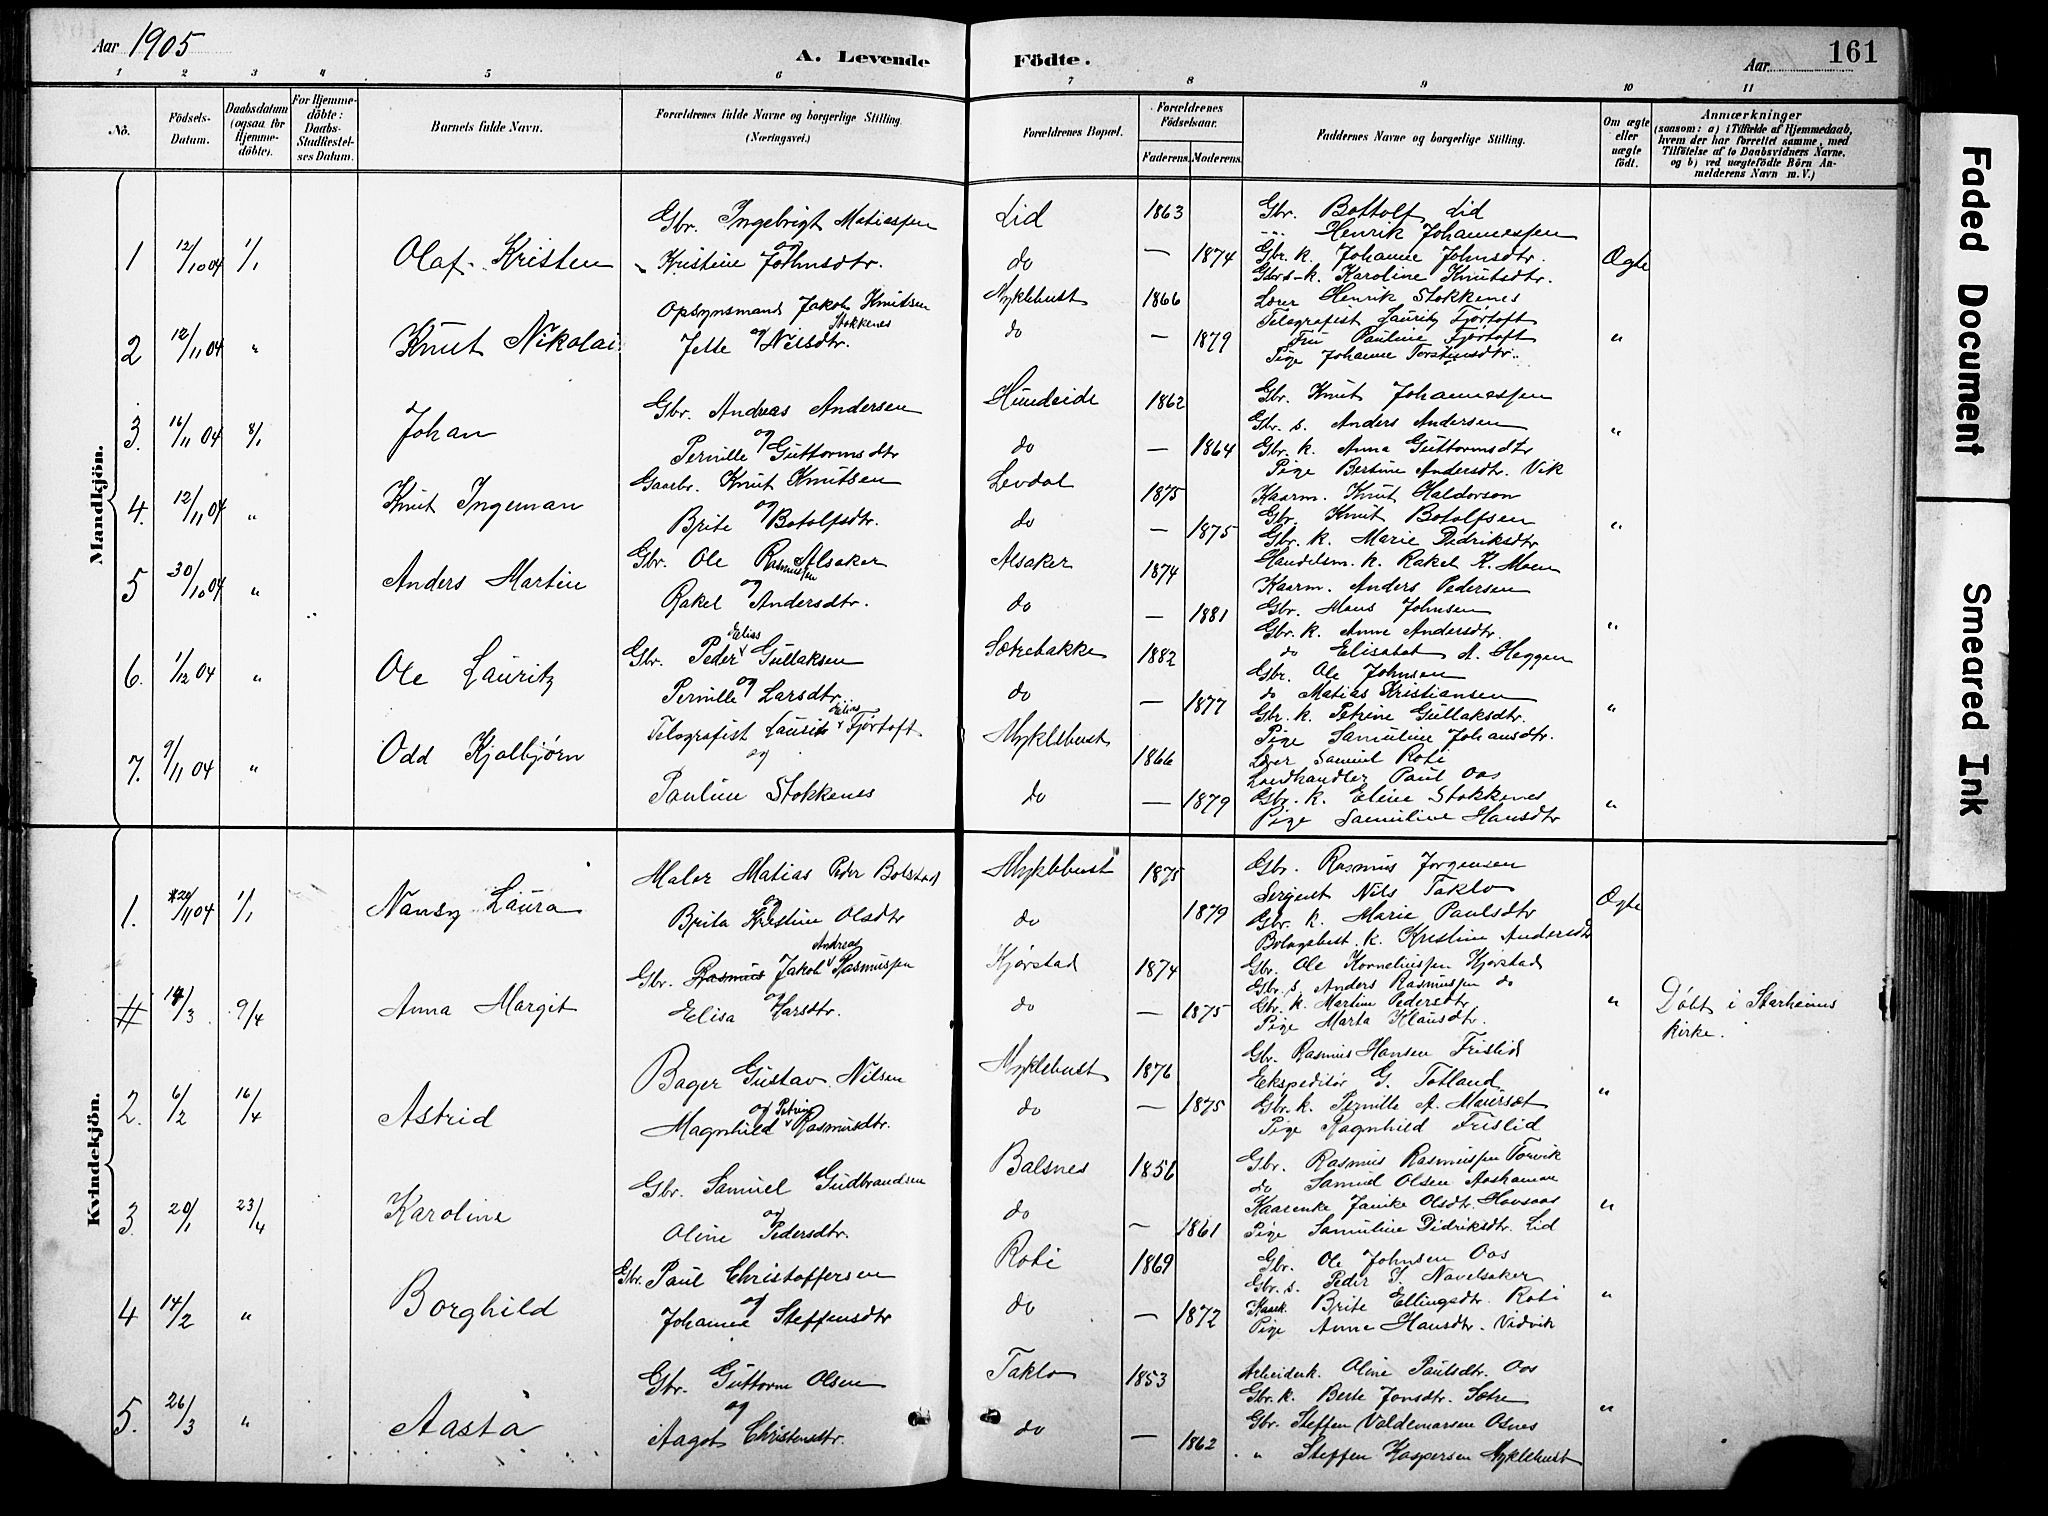 Aar 1905
A. Levende Födte.
Aar 161
1 2 3 4 5 6 7 8 9 10 11
No.
Födsels-Datum.
Daabsdatum (ogsaa for Hjemmedöbte).
For Hjemmedöbte: Daabs-Stadfæstelses Datum.
Barnets fulde Navn.
Forældrenes fulde Navne og borgerlige Stilling. (Næringsvei.)
Forældrenes Bopæl.
Forældrenes Födselsaar.
Faderens. Moderens.
Faddernes Navne og borgerlige Stilling.
Om ægte eller uægte født.
Anmærkninger
(saasom: a) i Tilfælde af Hjemmedaab, hvem der har forrettet samme, med Tilføielse af to Daabsvidners Navne, og b) ved uægtefödte Börn Anmelderens Navn m. V.)
Mandkjön.
1 12/10 04 1/1 Olaf Kristen
Gbr. Ingebrigt Matiassen Lid 1863
og Kristine Johnsdtr. do — 1874
Gbr. Bottolf Lid
Henrik Johannessen
Gbr. k. Johanne Johnsdtr. Ægte
Gbrs-k. Karoline Knutsdtr.
2 12/11 04 " Knut Nikolai
Opsynsmand Jakob Knutsen Stokkenes Myklebust 1866
Jette og Nilsdtr. do — 1879
Lærer Henrik Stokkenes
Telegrafist Lauritz Fjørtoft
Fru Pauline Fjørtoft "
Pige Johanne Torstensdtr.
3. 16/11 04 8/1 Johan
Gbr. Andreas Andersen Hundeide 1862
og Pernille Guttormsdtr do — 1864
Gbr. Knut Johannessen
Gbr. s. Anders Andersen "
Gbr. k. Anna Guttormsdtr
Pige Bertine Andersdtr. Vik
4. 12/11 04 " Knut Ingeman
Gaarbr. Knut Knutsen Levdal 1875
Brite og Botolfsdtr. do — 1875
Kaarm. Knut Haldorson
Gbr. Knut Botolfsen "
Gbr. k. Marie Didriksdtr
Handelsm. k. Rakel K. Moen
5 30/10 04 " Anders Martin
Gbr. Ole Rasmussen Alsaker Alsaker 1874
Rakel og Andersdtr. do — 1881
Kaarm. Anders Pedersen
Gbr. Mons Johnsen
Gbr. k. Anne Andersdtr. "
do Elisabet A. Heggen
6. 1/12 04 " Ole Lauritz
Gbr. Peder Elias Gullaksen Sætrebakke 1882
Pernille og Larsdtr. do — 1877
Gbr. Ole Johnsen
do Matias Kristiansen
Gbr. k. Petrine Gullaksdtr. "
Pige Samuline Johansdtr.
7. 9/11 04 " Odd Kjølbjørn
Telegrafist Laurits Elias Fjørtoft Myklebust 1866
og
Pauline Stokkenes do — 1879
Lærer Samuel Roti
Landhandler Paul Oos
Gbr. k. Eline Stokkenes "
Pige Samuline Hansdtr
Kvindekjön.
1. 20/11 04 1/1 Nansy Laura
Maler Matias Peder Bolstad Myklebust 1875
og Brita Kristine Olsdtr do 1879
Gbr. Rasmus Jørgensen
Sergent Nils Taklo Ægte
Gbr. k. Marie Paulsdtr
k. Kristine Andersdtr
# 14/3 9/4 Anna Margit
Gbr. Rasmus Jakob Andreas Rasmussen Kjørstad 1874
Elisa og Larsdtr. do — 1875
Gbr. Ole Korneliussen Kjørstad
Gbr. s. Anders Rasmussen do
Gbr. k. Martine Pedersdtr " Døbt i Starheims kirke.
Pige Marta Klausdtr.
2. 6/2 16/4 Astrid
Bager Gustav Nilsen Myklebust 1876
og Magnhild Petrine Rasmusdtr. do — 1875
Gbr. Rasmus Hansen Frislid
Ekspeditør G. Totland "
Gbr. k. Pernille A. Maurset
Pige Ragnhild Frislid
3 20/1 23/4 Karoline
Gbr. Samuel Gudbrandsen Balsnes 1856
og Oline Pedersdtr. do — 1861
Gbr. Rasmus Rasmussen Torvik
do Samuel Olsen Aashamar
Kaarenke Janike Olsdt. Hovsaas "
Pige Samuline Didriksdtr. Lid
4 14/2 " Borghild
Gbr. Paul Christoffersen Roti 1869
og Johanne Steffensdtr do — 1872
Gbr. Ole Johnsen Oos
Gbr. s. Peder S. Navelsaker
Kaark. Brite Ellingsdtr. Roti "
Pige Anne Hansdtr. Vidvik
5. 26/3 " Aasta
Gbr. Guttorm Olsen Taklo 1853
og Aagot Christensdtr. do — 1862
Arbeiderk. Oline Paulsdtr. Oos
Gbr. k. Berte Jonsdtr. Sætre
Gbr. Steffen Valdemarsen Osnes "
" Steffen Kaspersen Myklebust
Faded Document
Smeared Ink